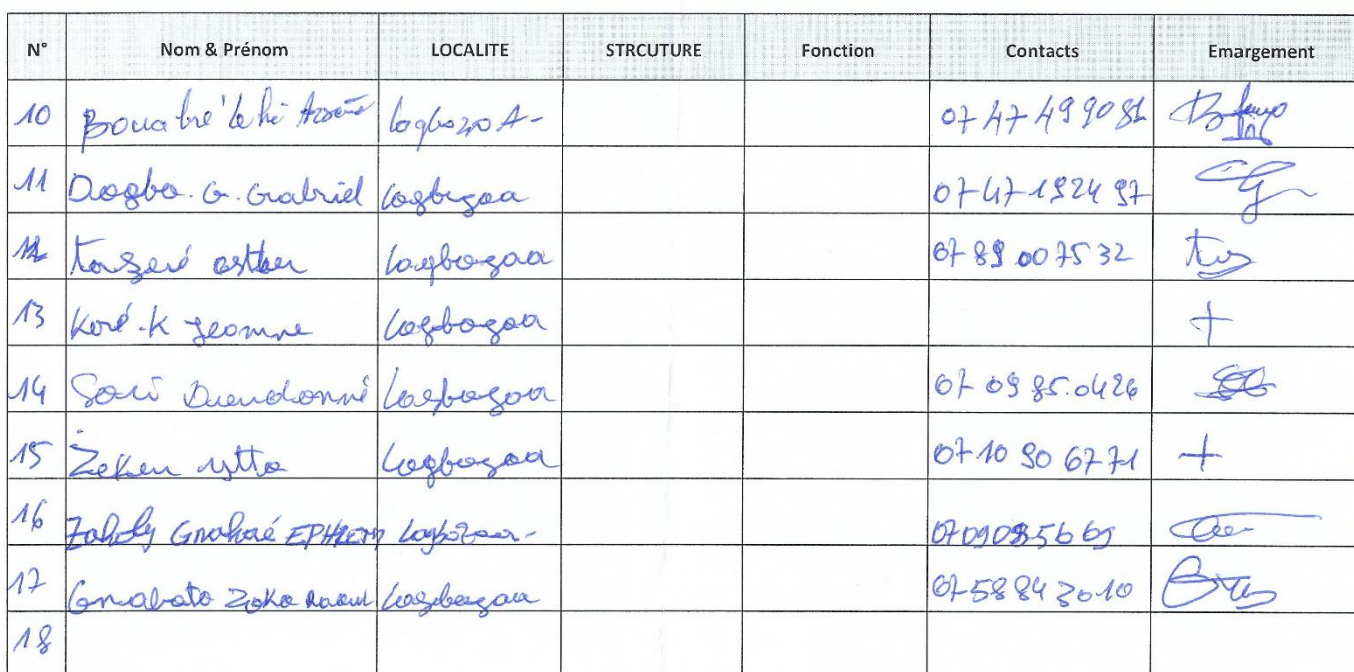 N° Nom & Prénom LOCALITE STRCUTURE Fonction Contacts Emargement
10 Bouabré 07 47 499081
11 Dogbo. G. Gabriel Logbozoa 07 47 1924 97
12 Logbozoa 07 89 00 75 32
13 Koré .K Jeanne Logbozoa +
14 Logbozoa 07 09 85.0426
15 Zeken Logbozoa 07 10 90 67 71 +
16 Zaholy Gnahoré EPHREM Logbozoa-
17 Gnabato Zoko Raoul Logbozoa 07 58 84 30 10
18